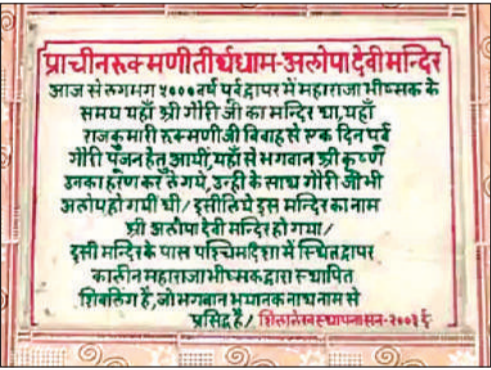 प्राचीनरुक्मणीतीर्थधाम-अलोपादेवीमन्दिर
आज से लगभग ५००० वर्ष पूर्व द्वापर में महाराजा भीष्मक के
समय यहाँ श्री गौरी जी का मन्दिर था, यहाँ
राजकुमारी रुक्मणी जी विवाह से एक दिन पूर्व
गौरी पूजन हेतु आयीं, यहाँ से भगवान श्री कृष्ण
उनका हरण कर ले गये, उन्ही के साथ गौरी जी भी
अलोप हो गयी थी/ इसीलिये इस मन्दिर का नाम
श्री अलोपा देवी मन्दिर हो गया/
इसी मन्दिर के पास पश्चिम दिशा में स्थित द्वापर
कालीन महाराजा भीष्मक द्वारा स्थापित
शिवलिंग है, जो भगवान भयानक नाथ नाम से
प्रसिद्ध है/ शिलालेख स्थापना सन-२००३ ई